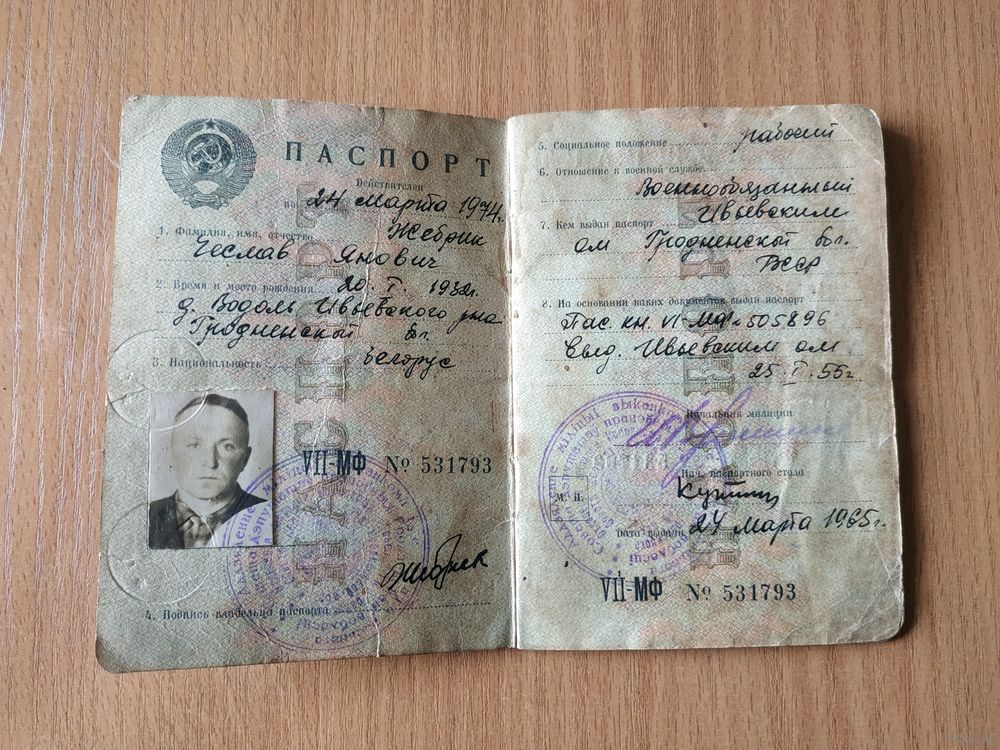 ПАСПОРТ
Действителен
по 24 марта 1974г.
1. Фамилия, имя, отчество Жебрик
Чеслав Янович
2. Время и место рождения 20. I. 1932г.
д. Водоль Ивьевского р-на
Гродненской обл.
3. Национальность белорус
VII-МФ № 531793
4. Подпись владельца паспорта
5. Социальное положение рабочий
6. Отношение к военной службе
Военнообязанный
7. Кем выдан паспорт Ивьевским
ом Гродненской обл.
БССР
8. На основании каких документов выдан паспорт
Пас. кн. VI-МФ № 505896
выд. Ивьевским ом
25. I. 55г.
Начальник милиции
Нач. паспортного стола
М. П.
Дата выдачи 24 марта 1965г.
VII-МФ № 531793